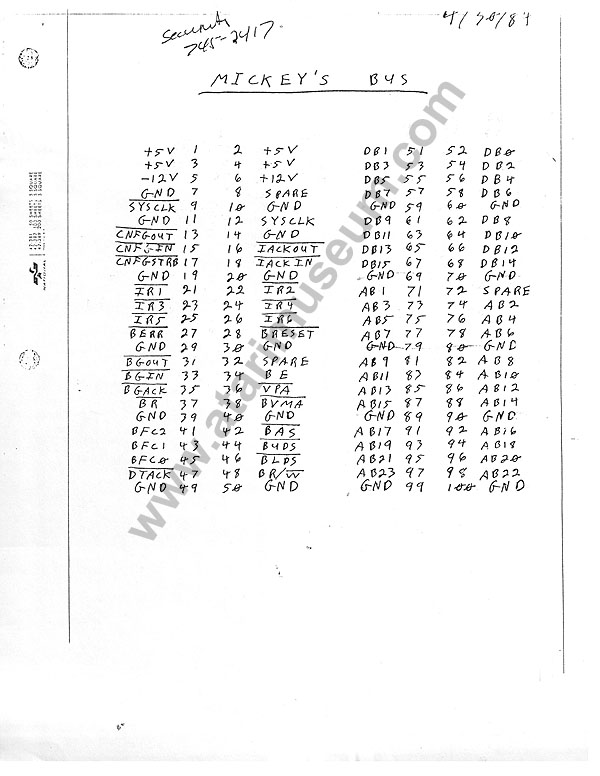 security
745-2417.
4/30/84
MICKEY'S BUS
+5V 1 2 +5V DB1 51 52 DB0
+5V 3 4 +5V DB3 53 54 DB2
-12V 5 6 +12V DB5 55 56 DB4
GND 7 8 SPARE DB7 57 58 DB6
SYSCLK 9 10 GND GND 59 60 GND
GND 11 12 SYSCLK DB9 61 62 DB8
CNFGOUT 13 14 GND DB11 63 64 DB10
CNFGIN 15 16 IACKOUT DB13 65 66 DB12
CNFGSTRB 17 18 IACKIN DB15 67 68 DB14
GND 19 20 GND GND 69 70 GND
IR1 21 22 IR2 AB1 71 72 SPARE
IR3 23 24 IR4 AB3 73 74 AB2
IR5 25 26 IR6 AB5 75 76 AB4
BERR 27 28 BRESET AB7 77 78 AB6
GND 29 30 GND GND 79 80 GND
BGOUT 31 32 SPARE AB9 81 82 AB8
BGIN 33 34 BE AB11 83 84 AB10
BGACK 35 36 VPA AB13 85 86 AB12
BR 37 38 BVMA AB15 87 88 AB14
GND 39 40 GND GND 89 90 GND
BFC2 41 42 BAS AB17 91 92 AB16
BFC1 43 44 BUDS AB19 93 94 AB18
BFC0 45 46 BLDS AB21 95 96 AB20
DTACK 47 48 BR/W AB23 97 98 AB22
GND 49 50 GND GND 99 100 GND
www.atarimuseum.com